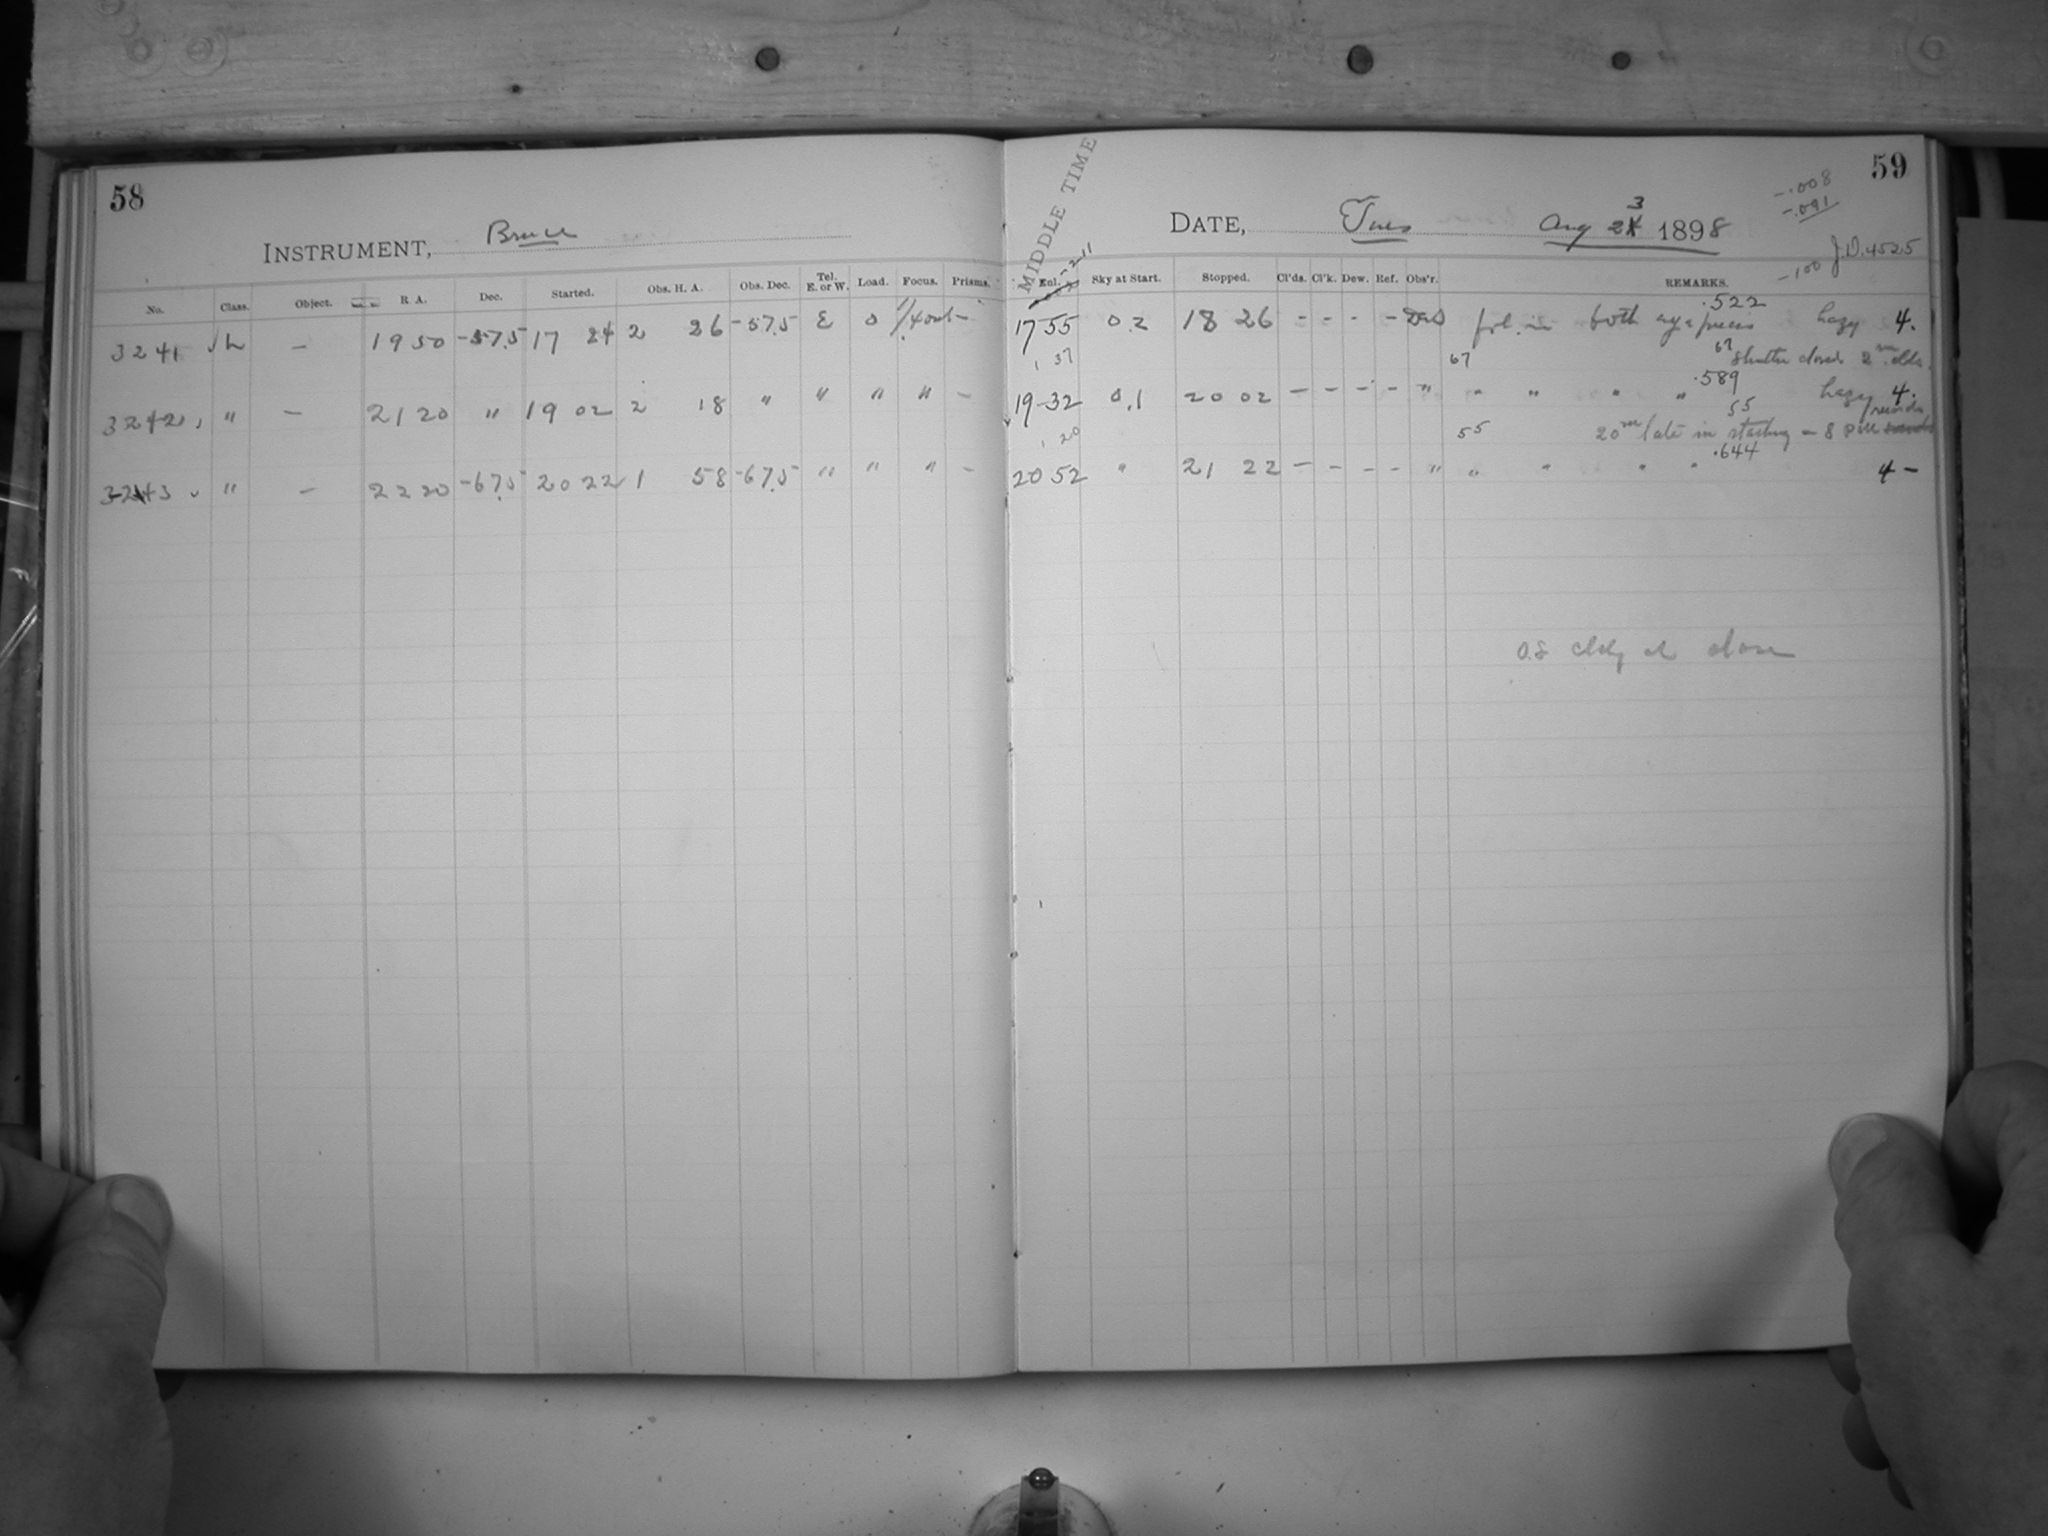 58
INSTRUMENT, Bruce
No. Class. Object. R A. Dec. Started. Obs. H. A. Obs. Dec. Tel. E. or W. Load. Focus. Prisms.
3241 L – 19 50 -57.5 17 24 2 26 -57.5 E 0 1/4 out –
3242 " – 21 20 " 19 02 2 18 " " " " –
3243 " – 22 20 -67.5 20 22 1 58 -67.5 " " " –
59
-.008
-.091
MIDDLE TIME
DATE, Tues Aug 23 1898
J.D. 4525
-.100
-.211
Exl. Sky at Start. Stopped. Cl'ds. Cl'k. Dew. Ref. Obs'r. REMARKS.
.522
17 55 0.2 18 26 – – – – fol. in both eye pieces hazy 4.
1 37 67 67 Shutter closed 2m
.589
19 32 0.1 20 02 – – – – " " " " " hazy 4.
55
1 20 55 20m late in starting – 8 P.M.
.644
20 52 " 21 22 – – – – " " " " " 4 –
0.8 cldy at close